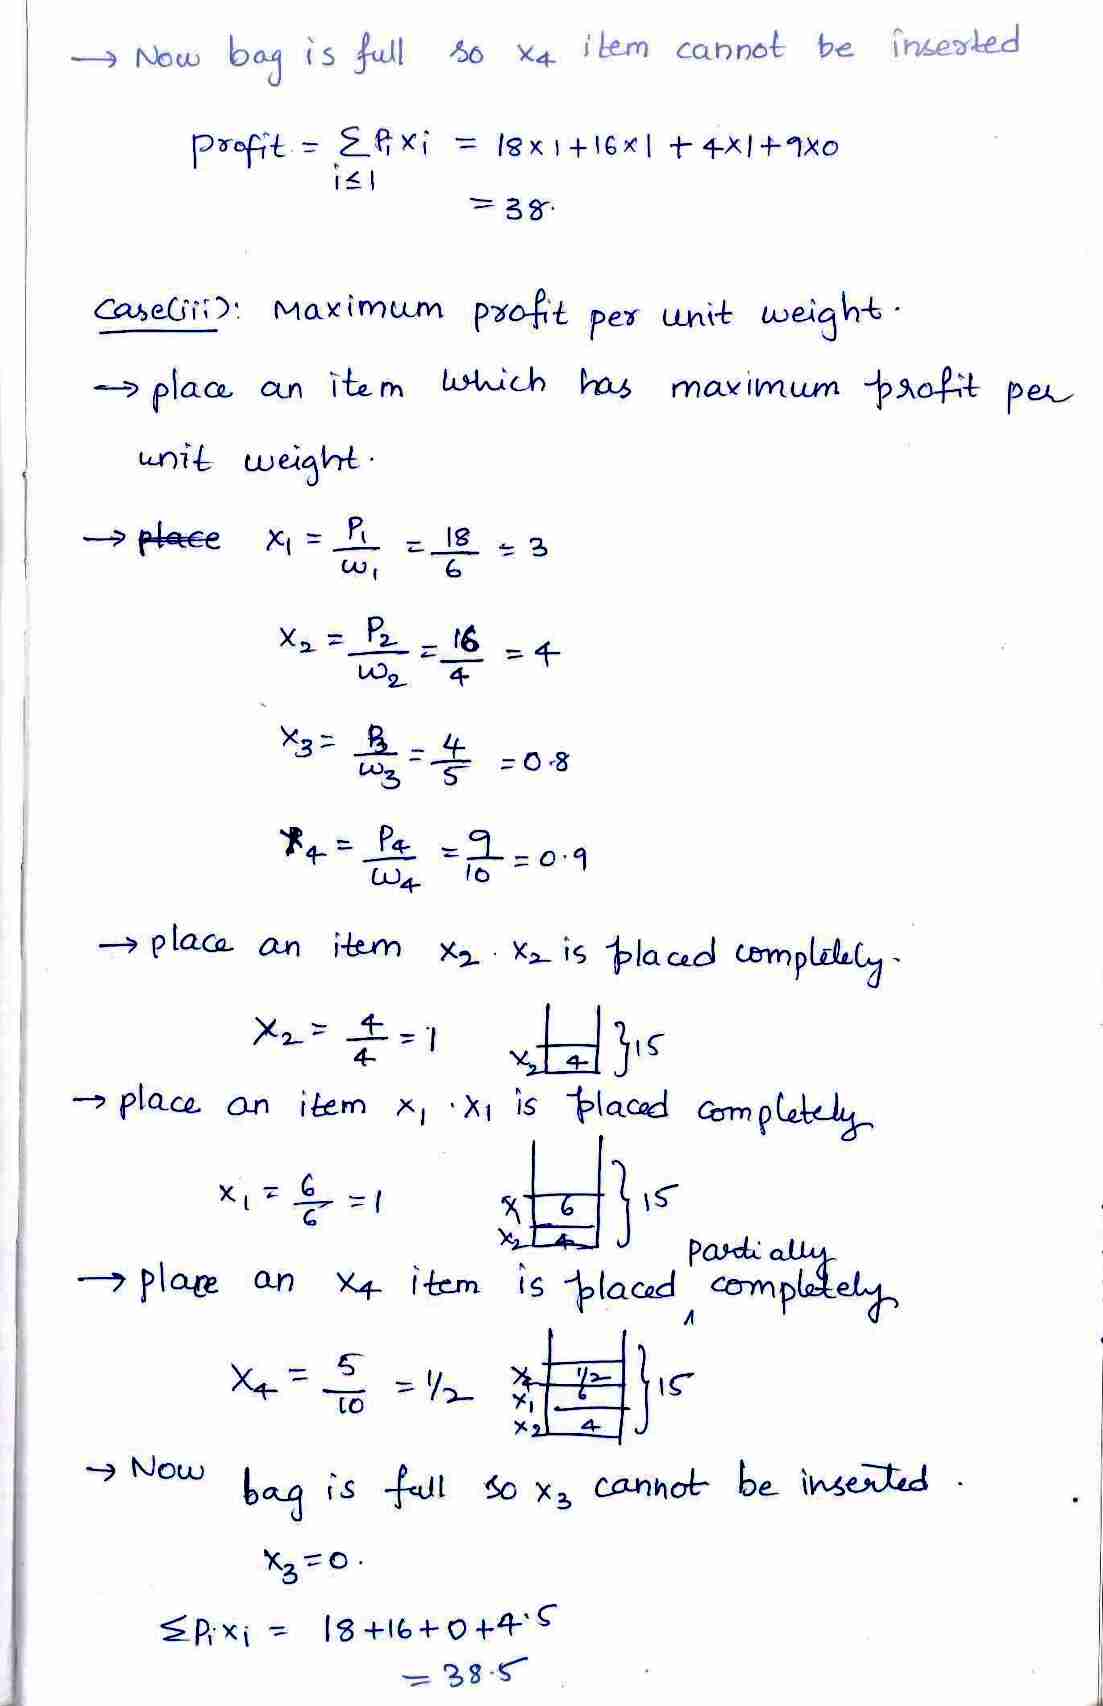 → Now bag is full so x4 item cannot be inserted
profit = Σ Pi xi = 18x1+16x1+4x1+9x0
i≤1
= 38.
Case(iii): Maximum profit per unit weight.
→ place an item which has maximum profit per
unit weight.
→ place x1 = P1/w1 = 18/6 = 3
x2 = P2/w2 = 16/4 = 4
x3 = P3/w3 = 4/5 = 0.8
x4 = P4/w4 = 9/10 = 0.9
→ place an item x2. x2 is placed completely.
x2 = 4/4 = 1 x2 4 }15
→ place an item x1. x1 is placed completely
x1 = 6/6 = 1 x1 6 x2 4 }15
partially
→ place an x4 item is placed ^ completely
x4 = 5/10 = 1/2 x4 1/2 x1 6 x2 4 }15
→ Now bag is full so x3 cannot be inserted.
x3 = 0.
ΣPixi = 18+16+0+4.5
= 38.5